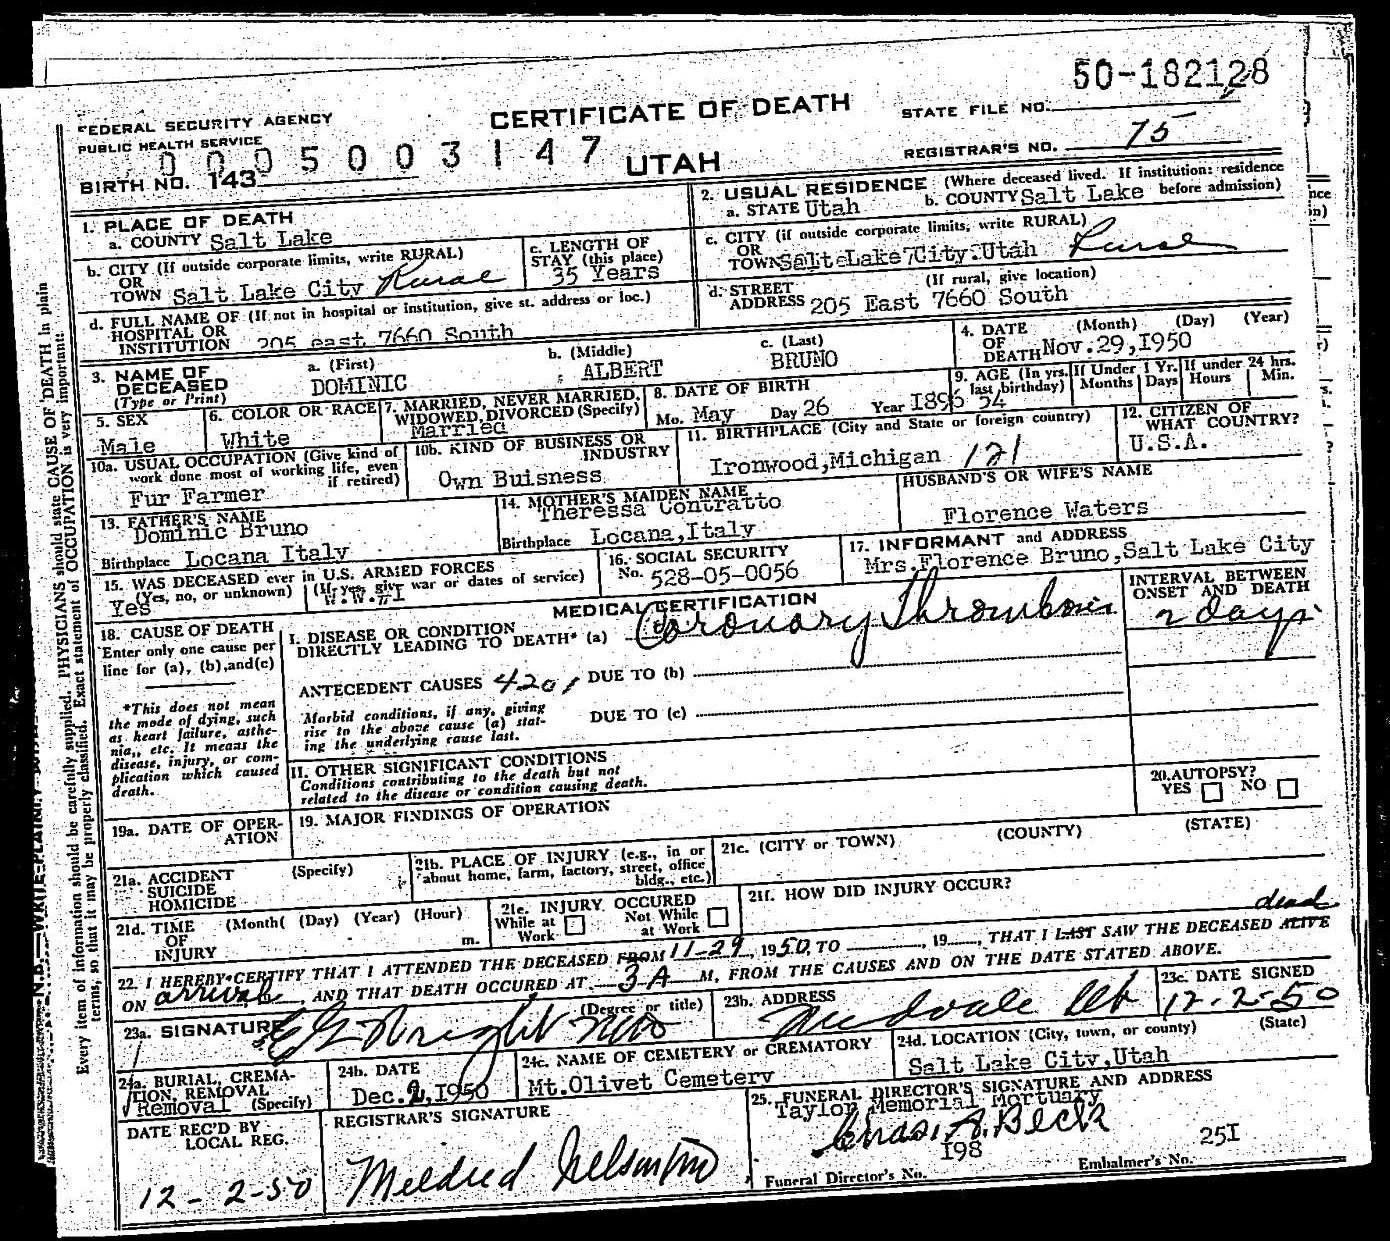 50-182128
FEDERAL SECURITY AGENCY
PUBLIC HEALTH SERVICE
CERTIFICATE OF DEATH
STATE FILE NO.
0005003147
UTAH
REGISTRAR'S NO. 75
BIRTH NO. 143
1. PLACE OF DEATH
a. COUNTY Salt Lake
b. CITY (If outside corporate limits, write RURAL)
OR
TOWN Salt Lake City Rural
c. LENGTH OF
STAY (this place)
35 Years
d. FULL NAME OF (If not in hospital or institution, give st. address or loc.)
HOSPITAL OR
INSTITUTION 205 east 7660 South
2. USUAL RESIDENCE (Where deceased lived. If institution: residence
before admission)
a. STATE Utah b. COUNTY Salt Lake
c. CITY (if outside corporate limits, write RURAL)
OR
TOWN Salt Lake City Utah Rural
d. STREET (If rural, give location)
ADDRESS 205 East 7660 South
3. NAME OF
DECEASED
(Type or Print)
a. (First) b. (Middle) c. (Last)
DOMINIC ALBERT BRUNO
4. DATE (Month) (Day) (Year)
OF
DEATH Nov.29,1950
5. SEX
Male
6. COLOR OR RACE
White
7. MARRIED, NEVER MARRIED,
WIDOWED, DIVORCED (Specify)
Married
8. DATE OF BIRTH
Mo. May Day 26 Year 1896
9. AGE (In yrs.
last birthday)
54
If Under 1 Yr.
Months Days
If under 24 hrs.
Hours Min.
10a. USUAL OCCUPATION (Give kind of
work done most of working life, even
if retired)
Fur Farmer
10b. KIND OF BUSINESS OR
INDUSTRY
Own Buisness
11. BIRTHPLACE (City and State or foreign country)
Ironwood,Michigan 121
12. CITIZEN OF
WHAT COUNTRY?
U.S.A.
13. FATHER'S NAME
Dominic Bruno
Birthplace Locana Italy
14. MOTHER'S MAIDEN NAME
Theressa Contratto
Birthplace Locana,Italy
HUSBAND'S OR WIFE'S NAME
Florence Waters
15. WAS DECEASED ever in U.S. ARMED FORCES
(Yes, no, or unknown) (If yes, give war or dates of service)
Yes W.W.#I
16. SOCIAL SECURITY
No. 528-05-0056
17. INFORMANT and ADDRESS
Mrs.Florence Bruno,Salt Lake City
18. CAUSE OF DEATH
Enter only one cause per
line for (a), (b),and(c)
*This does not mean
the mode of dying, such
as heart failure, asthe-
nia,, etc. It means the
disease, injury, or com-
plication which caused
death.
MEDICAL CERTIFICATION
I. DISEASE OR CONDITION
DIRECTLY LEADING TO DEATH* (a) Coronary Thrombosis
INTERVAL BETWEEN
ONSET AND DEATH
2 days
ANTECEDENT CAUSES 4201 DUE TO (b)
Morbid conditions, if any, giving
rise to the above cause (a) stat-
ing the underlying cause last.
DUE TO (c)
II. OTHER SIGNIFICANT CONDITIONS
Conditions contributing to the death but not
related to the disease or condition causing death.
19a. DATE OF OPER-
ATION
19. MAJOR FINDINGS OF OPERATION
20. AUTOPSY?
YES NO
21a. ACCIDENT (Specify)
SUICIDE
HOMICIDE
21b. PLACE OF INJURY (e.g., in or
about home, farm, factory, street, office
bldg., etc.)
21c. (CITY or TOWN) (COUNTY) (STATE)
21d. TIME (Month( (Day) (Year) (Hour)
OF
INJURY m.
21e. INJURY OCCURED
While at Not While
Work at Work
21f. HOW DID INJURY OCCUR?
dead
22. I HEREBY CERTIFY THAT I ATTENDED THE DECEASED FROM 11-29, 1950, TO , 19 , THAT I LAST SAW THE DECEASED ALIVE
ON arrival, AND THAT DEATH OCCURED AT 3 A M, FROM THE CAUSES AND ON THE DATE STATED ABOVE.
23a. SIGNATURE (Degree or title)
Wright MD
23b. ADDRESS
Midvale Ut
23c. DATE SIGNED
12-2-50
24a. BURIAL, CREMA-
TION, REMOVAL
Removal (Specify)
24b. DATE
Dec.2,1950
24c. NAME OF CEMETERY or CREMATORY
Mt.Olivet Cemetery
24d. LOCATION (City, town, or county) (State)
Salt Lake City,Utah
DATE REC'D BY
LOCAL REG.
12-2-50
REGISTRAR'S SIGNATURE
Mildred
25. FUNERAL DIRECTOR'S SIGNATURE AND ADDRESS
Taylor Memorial Mortuary
Chas. A. Beck
Funeral Director's No. 198
Embalmer's No. 251
Every item of information should be carefully supplied. PHYSICIANS should state CAUSE OF DEATH in plain
terms, so that it may be properly classified. Exact statement of OCCUPATION is very important.